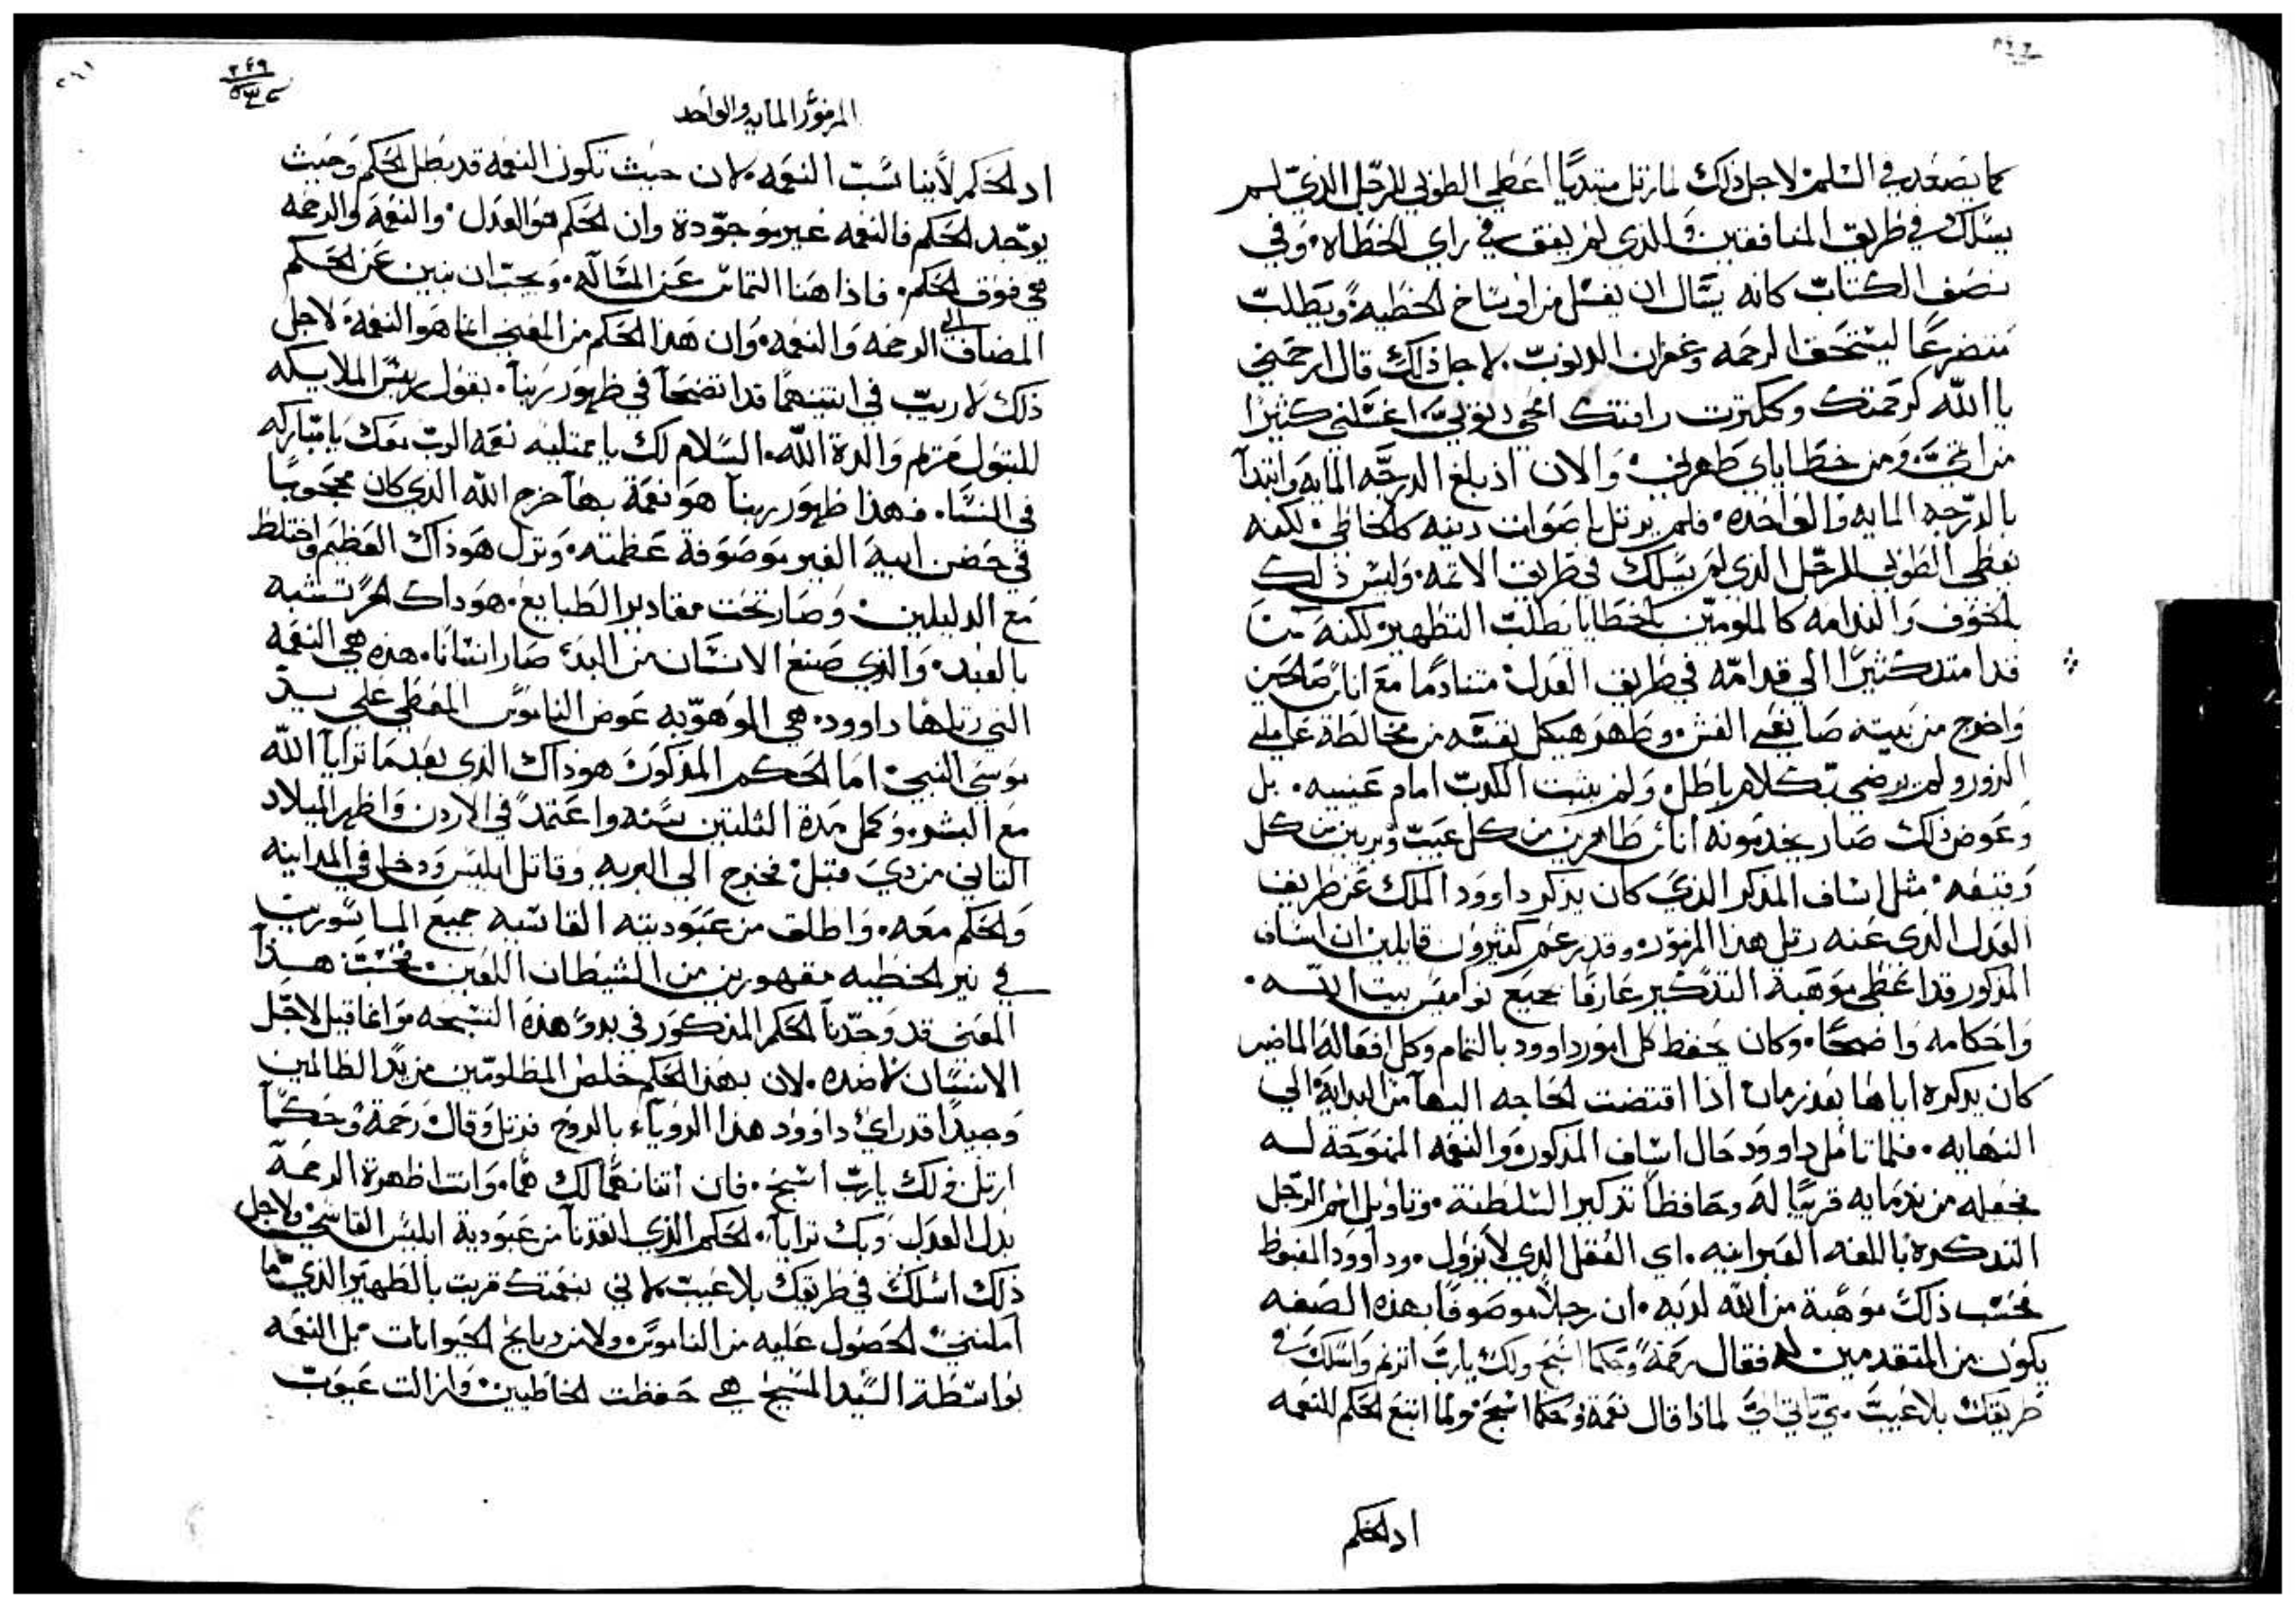 كما يصعد في السلم لاجل ذلك لما رتل مبتديًا اعطي الطوبي للرجل الذي لم
يسلك في طريق المنافقين والذي لم يقف في راي الخطاه وفي
نصف الكتاب كانه يسال ان يغسل من اوساخ الخطيه ويطلب
متضرعًا ليستحق الرحمه وغفران الدنوب لاجل ذلك قال ارحمني
يا الله كرحمتك وككترت رافتك امحي دنوبي اغسلني كثيرًا
من اثمي ومن خطاياي طهرني والان اذ بلغ الدرجه المايه وابتدا
بالدرجه المايه والواحده فلم يرتل باصوات دنيه كالخاطي لكنه
يعطي الطوبي للرجل الذي لم يسلك في طريق الاتمه وليس ذلك
بالخوف والندامه كالملومين بالخطايا يطلب التطهير لكنه
قد امتد كثيرًا الي قدامه في طريق العدل متنادمًا مع اناس صالحين
واخرج من بيته صانعي الغش وطهر هيكل نفسه من مخالطة عاملي
الزور ولم يرضي بكلام باطل ولم يثبت الكدب امام عينيه بل
وعوض ذلك صار يخدمونه اناس طاهرين من كل عيب وبريين من كل
وقيعه مثل اساف المذكر الذي كان يذكر داوود الملك عن طريق
العدل الذي عنه رتل هذا المزمور وقد زعم كثيرون قايلين ان اساف
المذكور قد اعطي موهبة التدكير عارفًا جميع نواميس بيت الله
واحكامه واضحًا وكان يحفظ كل امور داوود بالتمام وكل افعاله الماضيه
كان يدكره اياها بعد زمان اذا اقتضت الحاجه اليها من البداية الي
النهايه فلما تامل داوود حال اساف المذكور والنعمه الممنوحة له
فجعله من ندمايه قريبًا له وحافظًا تدكير السلطنة وتاويل اسم الرجل
التدكره باللغه العبرانيه اي العقل الذي لا يزول وداوود المغبوط
بحسب ذلك موهبة من الله لديه ان رجلًا موصوفًا بهذه الصفه
يكون من المتقدمين له فقال رحمة وحكمًا اسبح ولك يارب اترنم واسلك في
طريقك بلا عيب متي تاتي الي لماذا قال نعمة وحكمًا اسبح ولما اتبع الحكم للنعمه
اد الحكم
٢٤٩
المزمور المايه والواحد
اد الحكم لا يناسب النعمه لان حيث تكون النعمه قد بطل الحكم وحيث
يوجد الحكم فالنعمه غير موجودة وان الحكم هو العدل والنعمه والرحمه
هي فوق الحكم فاذا هنا التماس عن المساله ويجب ان نبين عن الحكم
المضاف الي الرحمه والنعمه وان هذا الحكم من المعني انما هو النعمه لاجل
ذلك لا ريب في اتنيهما قد اتضحا في ظهور ربنا يقول ريس الملايكه
للبتول مريم والدة الله السلام لك يا ممتليه نعمه الرب معك يا مباركه
في النسا فهذا ظهور ربنا هو نعمة بها خرج الله الذي كان محجوبًا
في حضن ابيه الغير موصوفة عظمته ونزل هو ذاك العظيم واختلط
مع الدليلين وصار تحت مقادير الطبايع هو داك الحر تشبه
بالعبد والذي صنع الانسان من البدء صار انسانًا هذه هي النعمه
التي رتلها داوود هي الموهوبه عوض الناموس المعطي علي يد
موسي النبي اما الحكم المذكور هو ذاك الذي بعدما ترايا الله
مع البشر وكمل مدة الثلتين سنه واعتمد في الاردن واظهر الميلاد
التاني من دي قبل فخرج الي البريه وقاتل ابليس ودخل في المداينه
والحكم معه واطلق من عبوديته القاسيه جميع الماسورين
في نير الخطيه مقهورين من الشيطان اللعين فبحسب هذا
المعني قد وحدنا الحكم المذكور في بدو هذه التسبحه وانما قيل لاجل
الانسان لا ضده لان بهذا الحكم خلص المظلومين من يد الظالمين
وجيدًا قد راي داوود هذا الروياء بالروح فرتل وقال رحمة وحكمًا
ارتل ولك يارب اسبح فان اتنانهما لك هما وانت اظهرة الرحمة
بدل العدل وبك ترايا الحكم الذي انقدنا من عبودية ابليس القاسي ولاجل
ذلك اسلك في طريقك بلا عيب لاني بنعمتك قربت بالطهير الذي ما
املني الحصول عليه من الناموس ولا من دبايح الحيوانات بل النعمه
بواسطة السيد المسيح هي حفظت الخاطيين وازالت عيوب